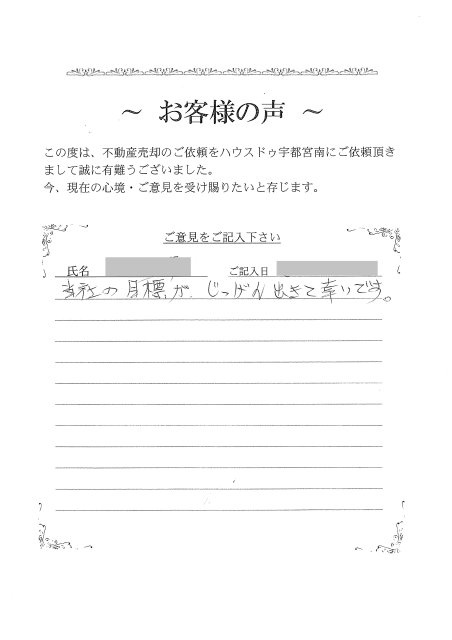 ～ お客様の声 ～
この度は、不動産売却のご依頼をハウスドゥ宇都宮南にご依頼頂き
まして誠に有難うございました。
今、現在の心境・ご意見を受け賜りたいと存じます。
ご意見をご記入下さい
氏名
ご記入日
当社の目標が、じつげん出きて幸いです。